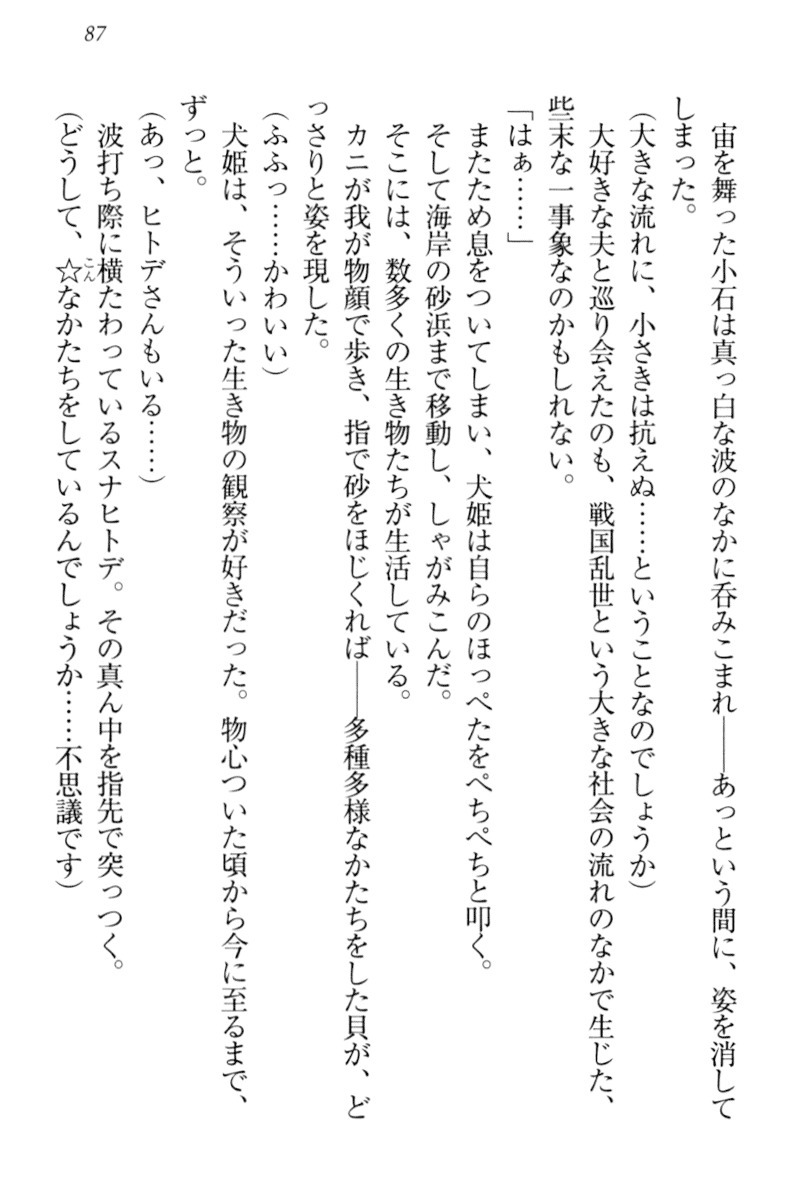 87
宙を舞った小石は真っ白な波のなかに呑みこまれ――あっという間に、姿を消して
しまった。
(大きな流れに、小さきは抗えぬ……ということなのでしょうか)
大好きな夫と巡り会えたのも、戦国乱世という大きな社会の流れのなかで生じた、
些末な一事象なのかもしれない。
「はぁ……」
またため息をついてしまい、犬姫は自らのほっぺたをぺちぺちと叩く。
そして海岸の砂浜まで移動し、しゃがみこんだ。
そこには、数多くの生き物たちが生活している。
カニが我が物顔で歩き、指で砂をほじくれば――多種多様なかたちをした貝が、ど
っさりと姿を現した。
(ふふっ……かわいい)
犬姫は、そういった生き物の観察が好きだった。物心ついた頃から今に至るまで、
ずっと。
(あっ、ヒトデさんもいる……)
波打ち際に横たわっているスナヒトデ。その真ん中を指先で突っつく。
(どうして、☆こんなかたちをしているんでしょうか……不思議です)